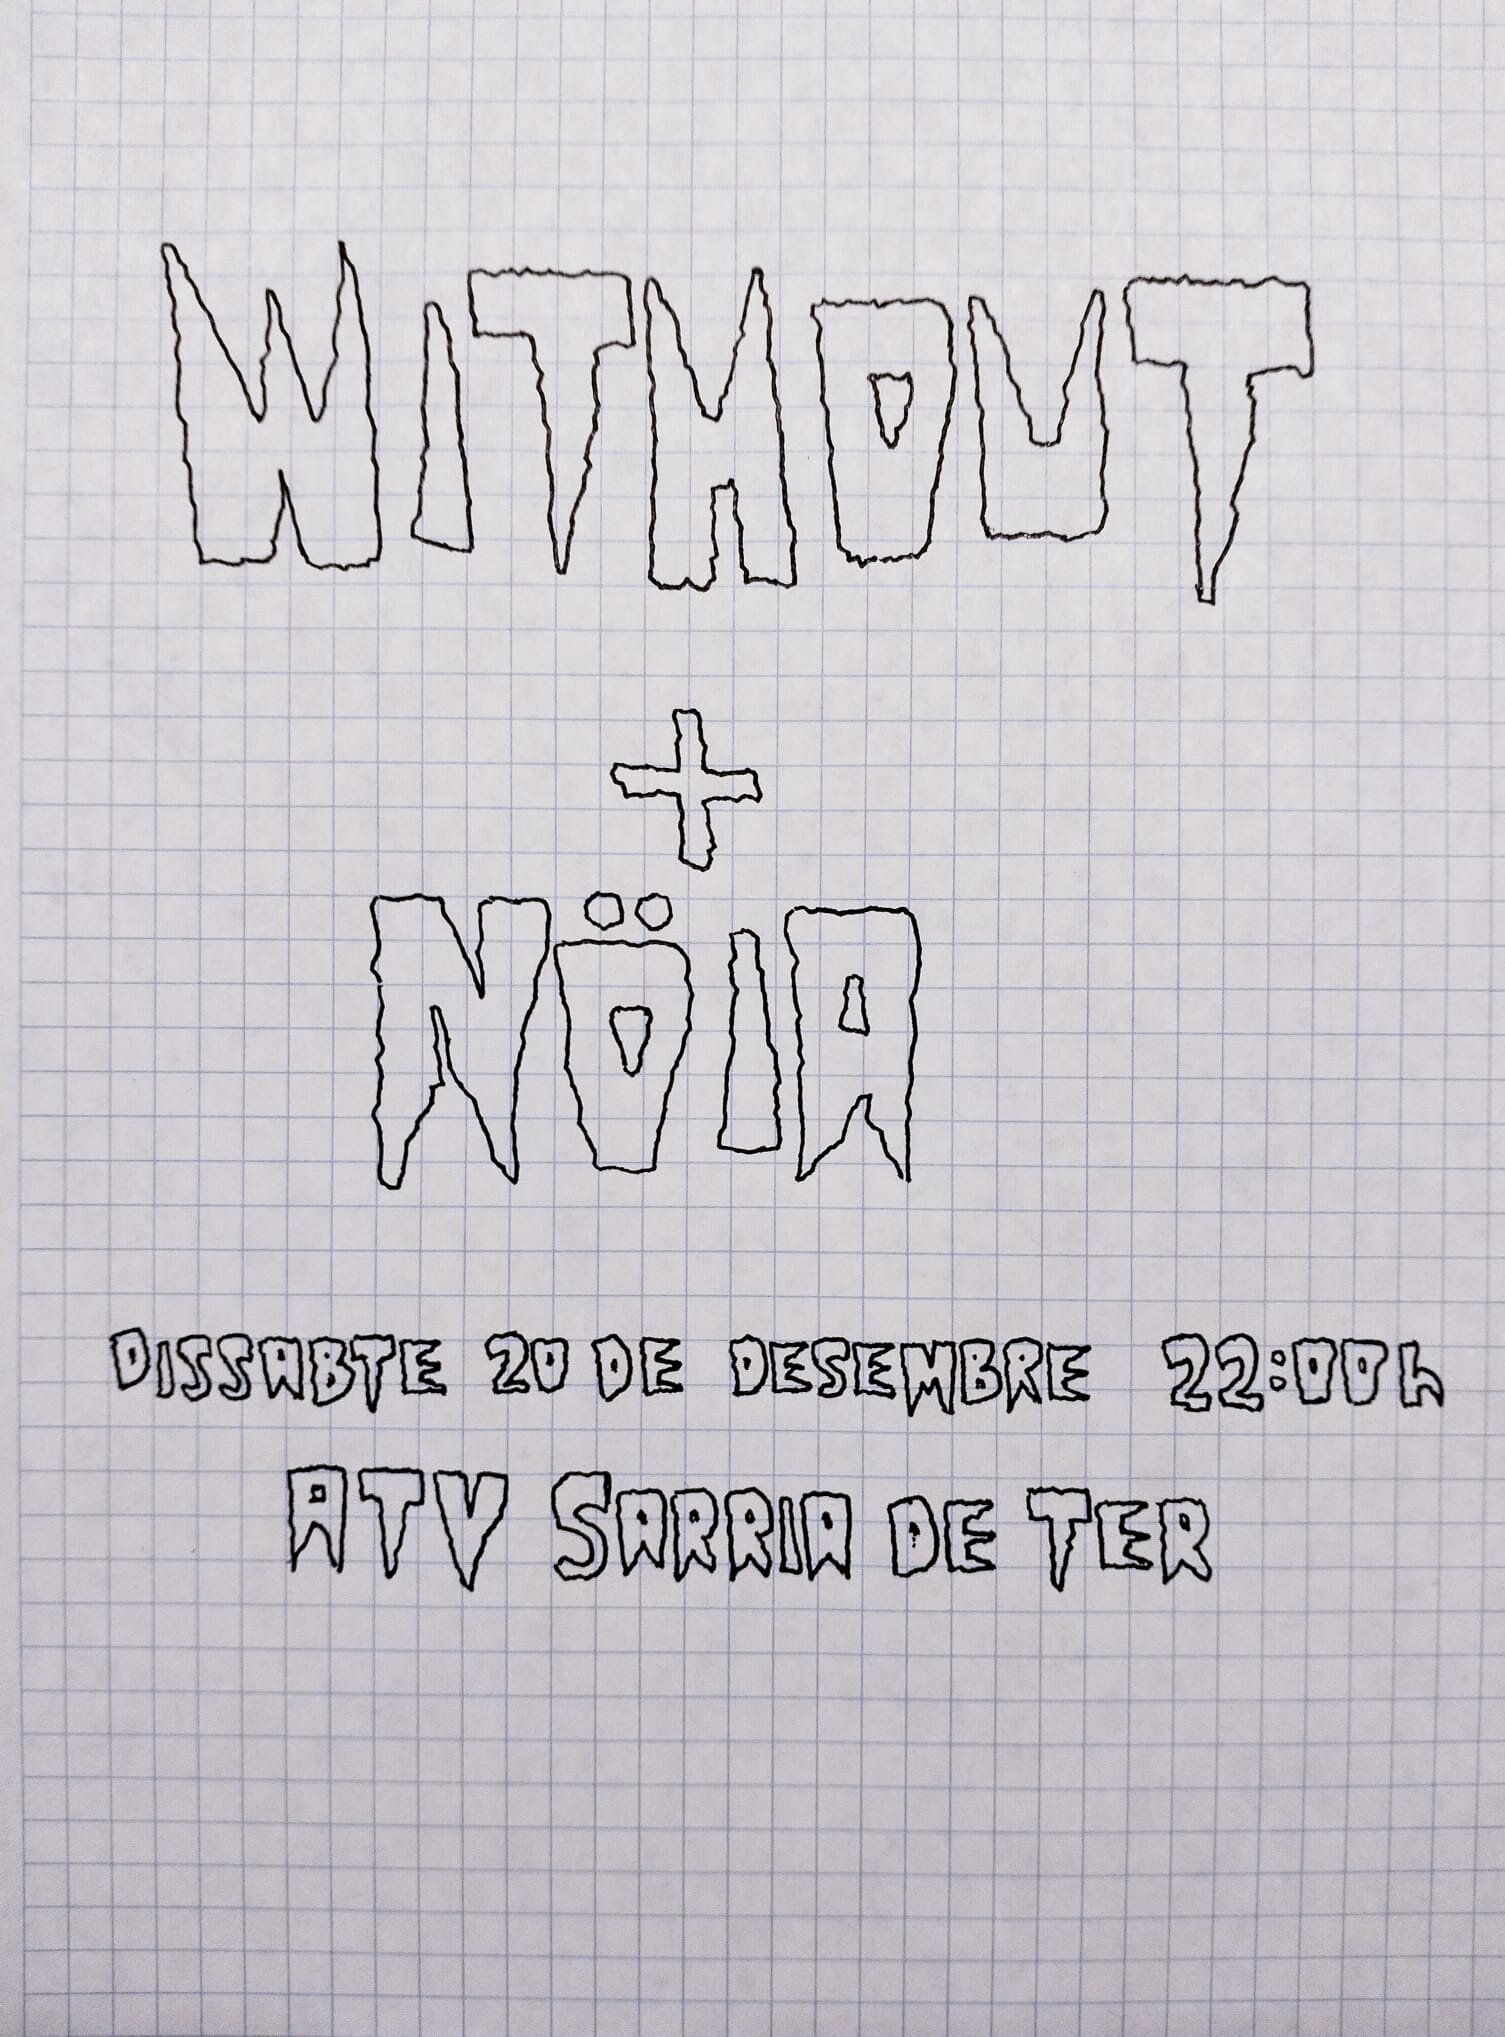 WITHOUT
+
NÖIA
DISSABTE 20 DE DESEMBRE 22:00h
ATV SARRIA DE TER